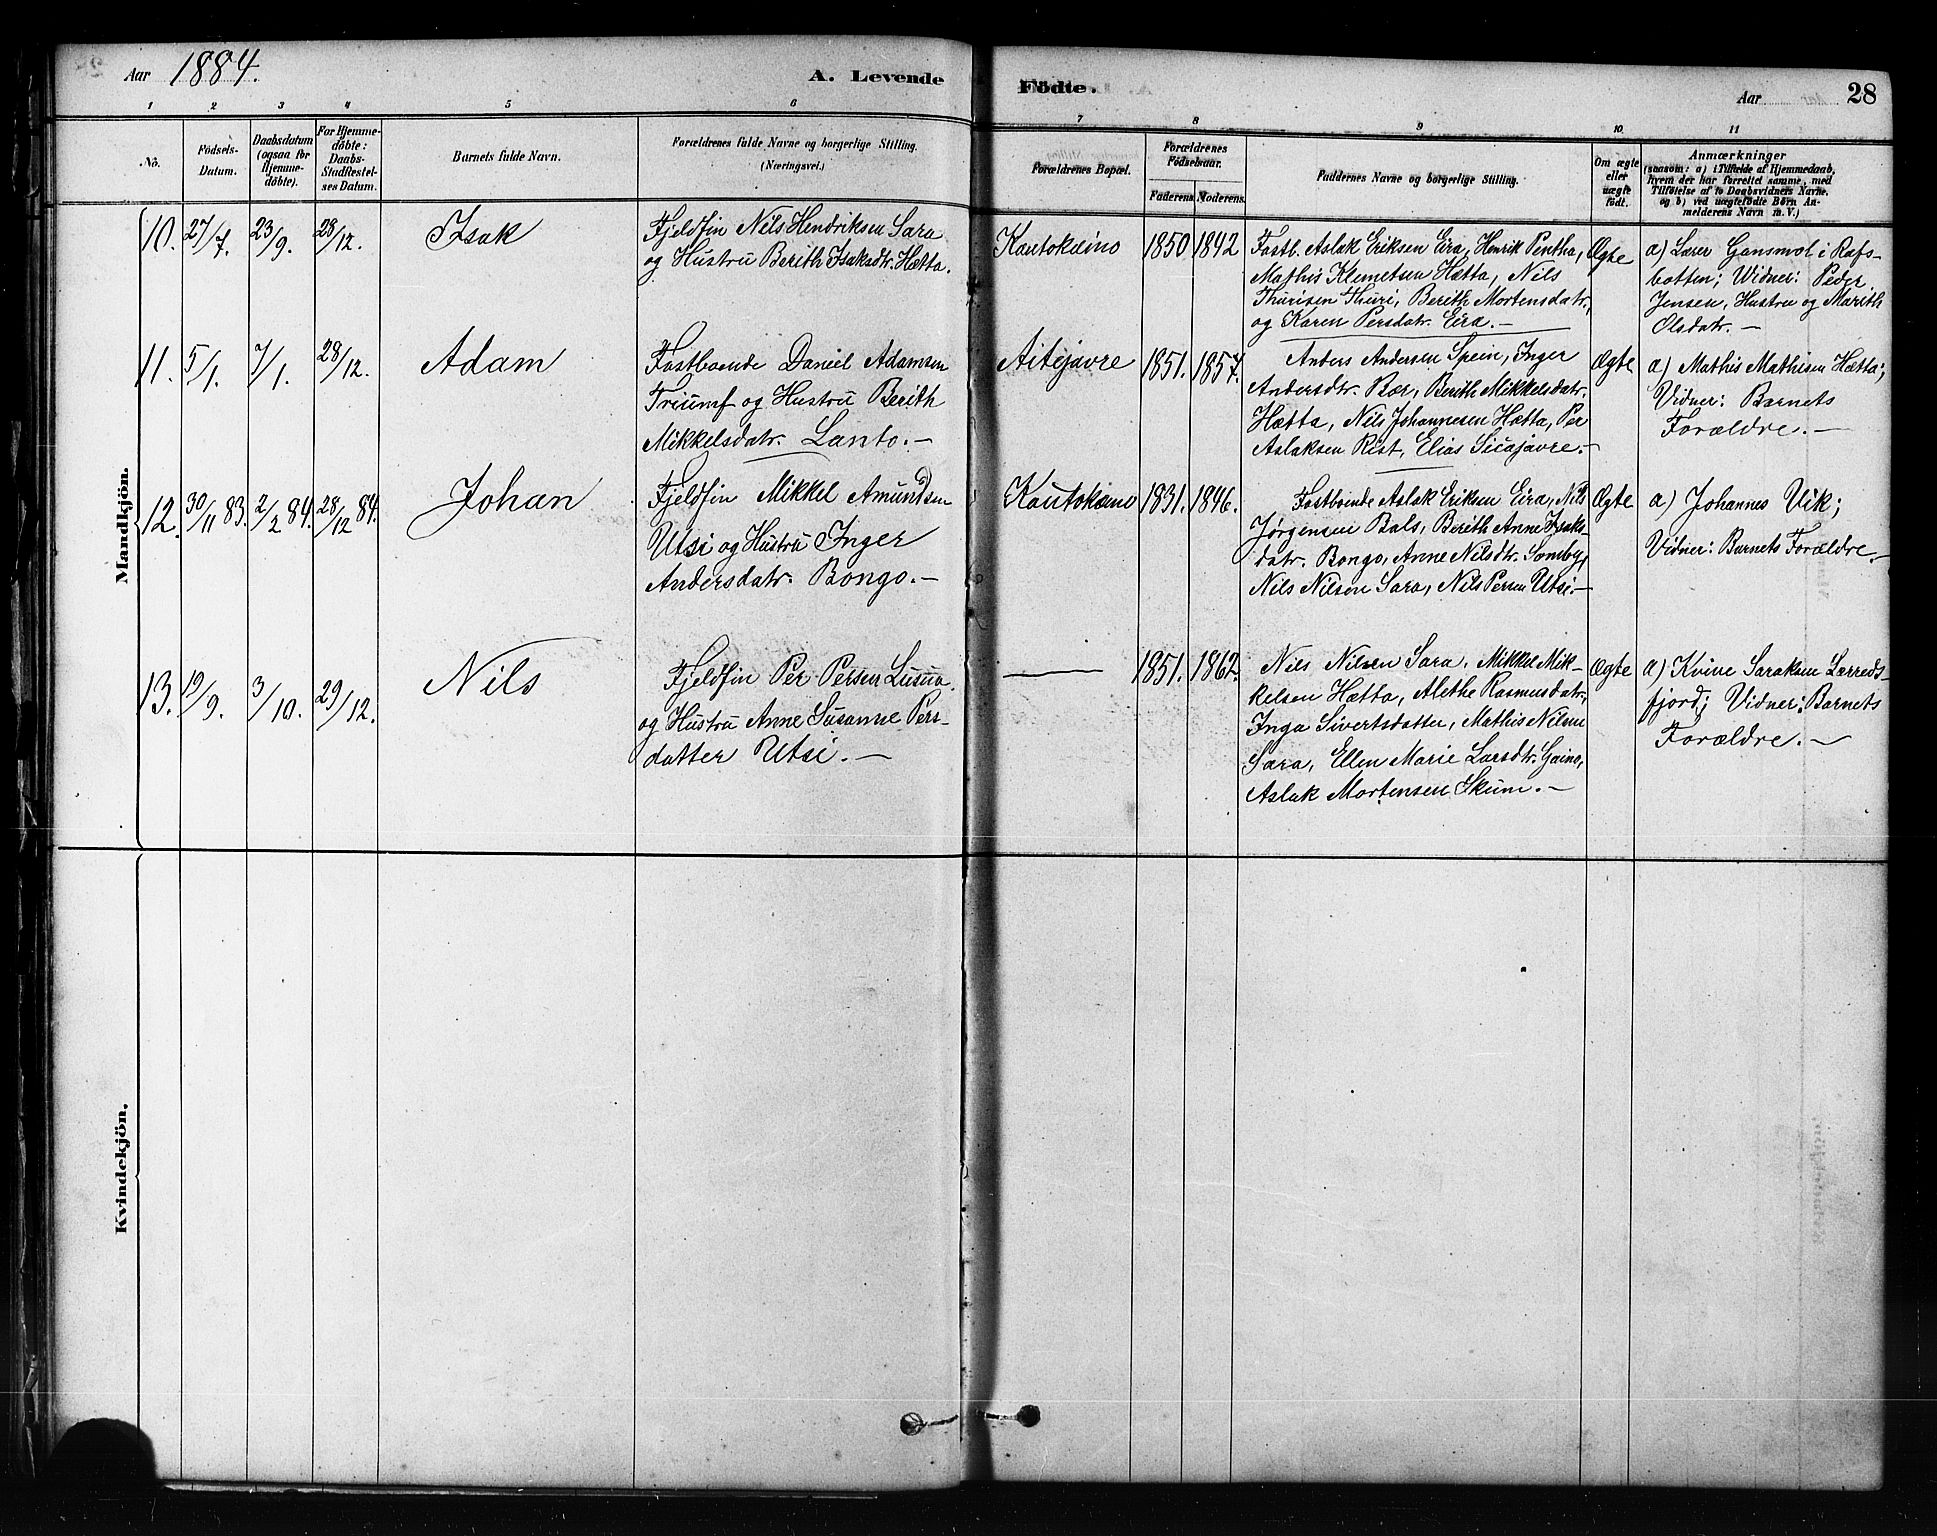 Aar 1884. A. Levende Födte. Aar 28
1 2 3 4 5 6 7 8 9 10 11
No. Födsels-Datum. Daabsdatum (ogsaa for Hjemme-döbte). For Hjemme-döbte: Daabs-Stadfestel-ses Datum. Barnets fulde Navn. Forældrenes fulde Navne og borgerlige Stilling. (Næringsvei.) Forældrenes Bopæl. Forældrenes Födselsaar. Faderens. Moderens. Faddernes Navne og borgerlige Stilling. Om ægte eller uægte födt. Anmærkninger
(saasom: a) i Tilfælde af Hjemmedaab,
hvem der har forrettet samme, med
Tilföielse af to Daabsvidners Navne.
og b) ved uægtefödte Börn An-
melderens Navn m.V.)
Mandkjön.
10. 27/7. 23/9. 28/12. Isak
Fjeldfin Nils Hendriksen Sara
og Hustru Berith Isaksdtr. Hætta.
Kautokeino 1850 1842
Fastb. Aslak Eriksen Eira, Henrik Pentha,
Mathis Klemetsen Hætta, Nils
Thurisen Thuri, Berith Mortensdatr.
og Karen Persdatr. Eira.—
Ægte
a) Lærer Gansmol i Rafs-
botten; Widner: Peder
Jensen, Hustru og Marith
Olsdatr.—
11. 5/1. 7/1. 28/12. Adam
Fastboende Daniel Adamsen
Triumf og Hustru Berith
Mikkelsdatr. Lanto.—
Aitejavre 1851. 1857.
Anders Andersen Spein, Inger
Andersdtr. Bær, Berith Mikkelsdatr.
Hætta, Nils Johannesen Hætta, Per
Aslaksen Rist, Elias Sicajavre.—
Ægte
a) Mathis Mathisen Hætta;
Vidner: Barnets
Forældre.—
12. 30/11 83. 2/2 84. 28/12 84. Johan
Fjeldfin Mikkel Amundsen
Utsi og Hustru Inger
Andersdatr. Bongo.—
Kautokeino 1831. 1846.
Fastboende Aslak Eriksen Eira, Nils
Jørgensen Bals, Berith Anne Isaks-
datr. Bongo, Anne Nilsdtr. Somby,
Nils Nilsen Sara, Nils Persen Utsi.—
Ægte
a) Johannes Vik;
Vidner: Barnets Forældre.—
13. 19/9. 3/10. 29/12. Nils
Fjeldfin Per Persen Lusua
og Hustru Anne Susanne Pers-
datter Utsi.—
— 1851. 1862.
Nils Nilsen Sara, Mikkel Mik-
kelsen Hætta, Alethe Rasmusdatr,
Inga Sivertsdatter, Mathis Nilsen
Sara, Ellen Marie Larsdtr. Gaino,
Aslak Mortensen Skum.—
Ægte
a) Kvine Saraksen Lærreds-
fjord; Vidner: Barnets
Forældre.—
Kvindekjön.